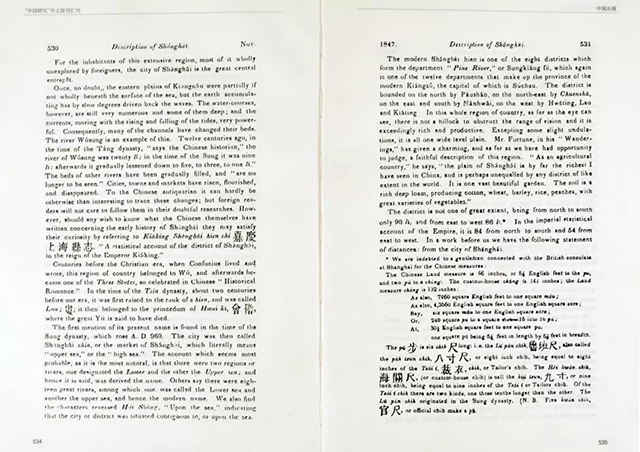 "中国研究"外文旧刊汇刊
530 Description of Shánghái. Nov.
For the inhabitants of this extensive region, most of it wholly
unexplored by foreigners, the city of Shánghái is the great central
entrepôt.
Once, no doubt, the eastern plains of Kiangnán were partially if
not wholly beneath the surface of the sea, but the earth accumulat-
ing has by slow degrees driven back the waves. The water-courses,
however, are still very numerous and some of them deep; and the
currents, moving with the rising and falling of the tides, very power-
ful. Consequently, many of the channels have changed their beds.
The river Wúsung is an example of this. Twelve centuries ago, in
the time of the Táng dynasty, "says the Chinese historian," the
river of Wúsung was twenty li; in the time of the Sung it was nine
li; afterwards it gradually lessened down to five, to three, to one li."
The beds of other rivers have been gradually filled, and "are no
longer to be seen." Cities, towns and markets have risen, flourished,
and disappeared. To the Chinese antiquarian it can hardly be
otherwise than interesting to trace these changes; but foreign rea-
ders will not care to follow them in their doubtful researches. How-
ever, should any wish to know what the Chinese themselves have
written concerning the early history of Shánghái they may satisfy
their curiosity by referring to Kiáking Shánghái hien chi 嘉慶
上海縣志. "A statistical account of the district of Shánghái,
in the reign of the Emperor Kiáking."
Centuries before the Christian era, when Confucius lived and
wrote, this region of country belonged to Wú, and afterwards be-
came one of the Three States, so celebrated in Chinese "Historical
Romance." In the time of the Tsin dynasty, about two centuries
before our era, it was first raised to the rank of a hien, and was called
Lau; it then belonged to the princedom of Hwui kí, 會稽
where the great Yü is said to have died.
The first mention of its present name is found in the time of the
Sung dynasty, which rose A. D. 960. The city was then called
Shánghái chin, or the market of Shánghái, which literally means
"upper sea," or the "high sea." The account which seems most
probable, as it is the most natural, is that there were two regions or
rivers, one designated the Lower and the other the Upper sea; and
hence it is said, was derived the name. Others say there were eigh-
teen great rivers, among which one was called the Lower sea and
another the upper sea, and hence the modern name. We also find
the characters reversed "Upon the sea," indicating
that the city or district was situated contiguous to, or upon the sea.
534
中国丛报
1847. Description of Shánghái. 531
The modern Shánghái hien is one of the eight districts which
form the department "Pine River," or Sungkiáng fú, which again
is one of the twelve departments that make up the province of the
modern Kiángsú, the capital of which is Súchau. The district is
bounded on the north by Páushán, on the north-east by Chuenshá,
on the east and south by Nánhwái, on the west by Hwáting, Lau
and Kiáting. In this whole region of country, as far as the eye can
see, there is not a hillock to obstruct the range of vision and it is
exceedingly rich and productive. Excepting some slight undula-
tions, it is all one wide level plain. Mr. Fortune, in his "Wander-
ings," has given a charming, and as far as we have had opportunity
to judge, a faithful description of this region. "As an agricultural
country," he says, "the plain of Shánghái is by far the richest I
have seen in China, and is perhaps unequalled by any district of like
extent in the world. It is one vast beautiful garden. The soil is a
rich deep loam, producing cotton, wheat, barley, rice, peaches, with
great varieties of vegetables."
The district is not one of great extent, being from north to south
only 90 li, and from east to west 86 li.* In the imperial statistical
account of the Empire, it is 84 from north to south and 54 from
east to west. In a work before us we have the following statement
of distances: from the city of Shánghái.
* We are indebted to a gentleman connected with the British consulate
at Shanghai for the Chinese measures
The Chinese Land measure is 66 inches, or 5½ English feet to the pú,
and two pú to a cháng. The custom-house cháng is 141 inches; the land
measure cháng is 132 inches:
As also, 7260 square English feet to one square máu;
As also, 43560 English square feet to one English square acre;
Say, six square máu to one English square acre;
Or, 240 square pú to a square
At, 30¼ English square feet to one square pu.
one square pú being 5½ feet in length by 5½ feet in breadth.
The pú 步 is six chih 尺 long; i.e. the Lú pán chih, 魯班尺, also called
the pát tsun chih, 八寸尺, or eight inch chih, being equal to eight
inches of the Tsái í, 裁衣, chih, or Tailor's chih. The Hái kwán chih,
海關尺, (or custom-house chih) is call the kiú tsun, 九寸, or nine
inch chih, being equal to nine inches of the Tsái í or Tailors chih. Of the
Tsái í chih there are two kinds, one three tenths longer than the other. The
Lú pán chih originated in the Sung dynasty. [N. B. Five kwán chih,
官尺, or official chih make a pú.
535